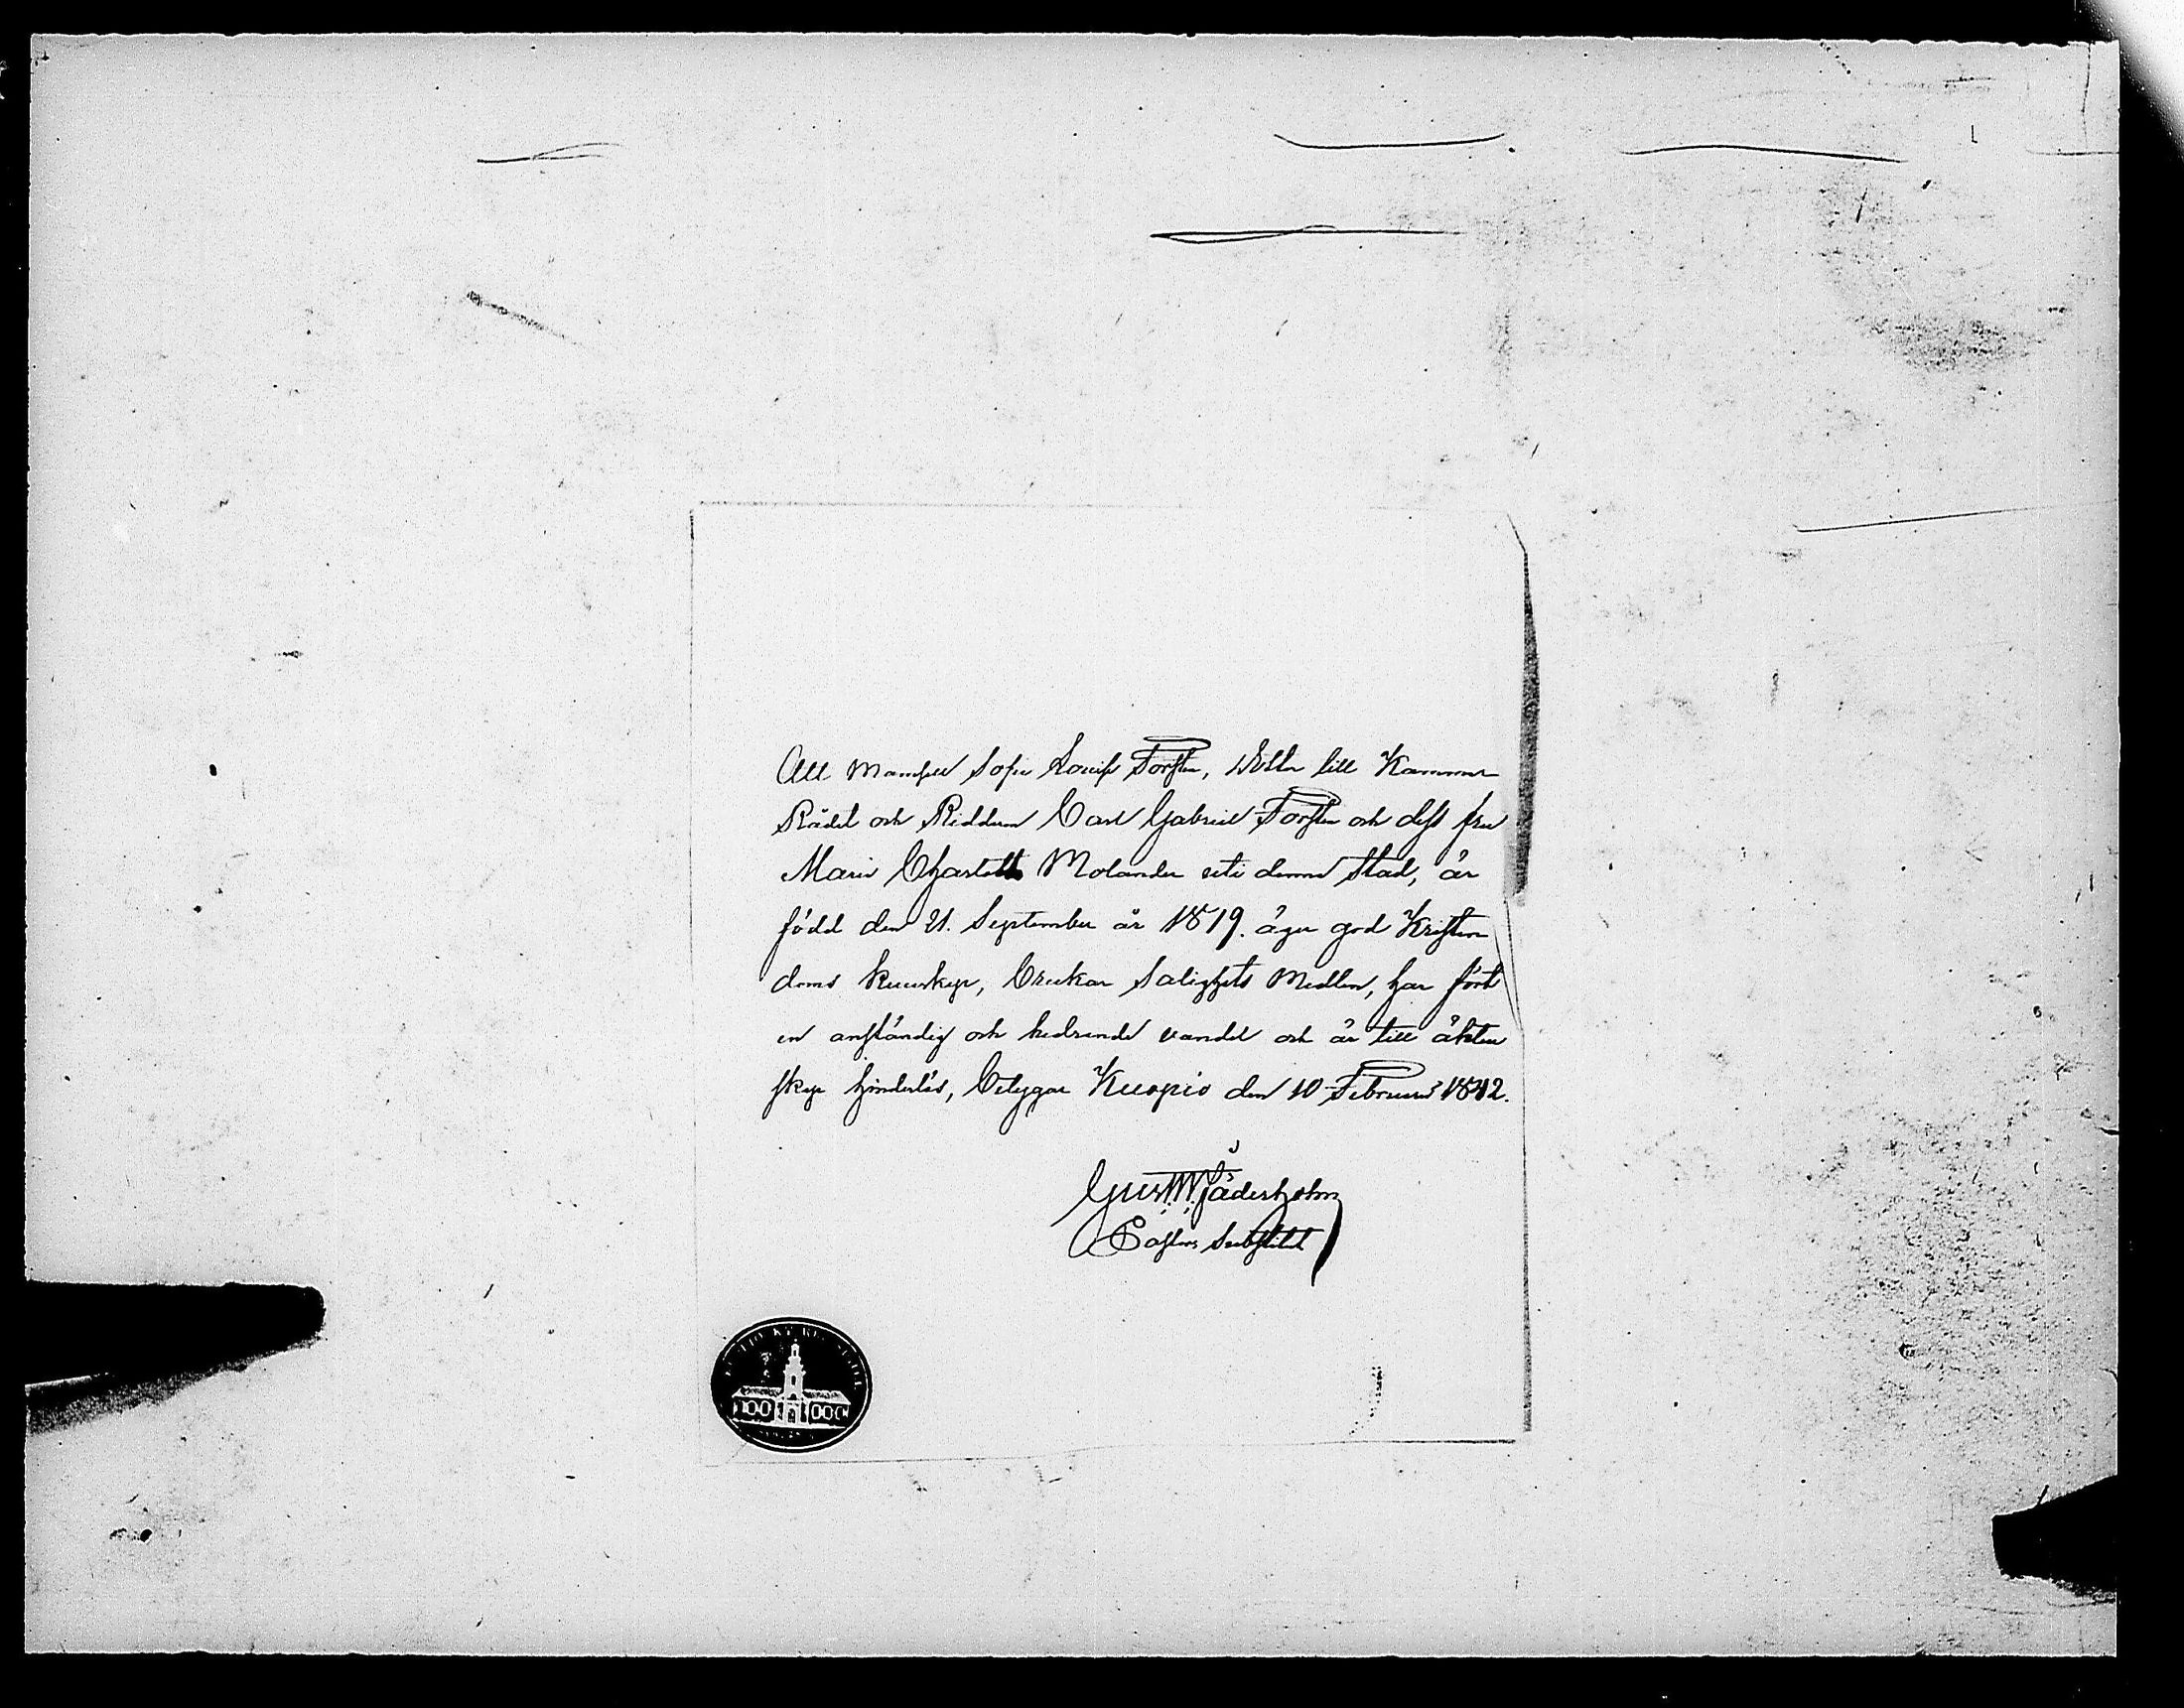 Att Mamsell Sofie Lovise Forsten, Dotter till Kammar
Rådet och Riddaren Carl Gabriel Forsten och dess fru
Maria Charlotta Molander uti denna Stad, är
född den 21. September år 1819. äger god Kristen
doms kunskap, brukar Salighets Medlen, har fört
en anständig och hedrande vandel och är till äkten
skap hinderlös, betygar Kuopio den 10 Februarii 1842.
Gust W Säderholm
Pastors Substitut